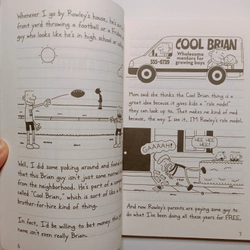 Whenever I go by Rowley's house, he's in his
front yard throwing a football or a Frisbee
guy who looks like he's in high school or
Well, I did some poking around and found
that this Brian guy isn't just some normal
from the neighborhood. He's part of a
called "Cool Brian," which is sort of like
brother-for-hire kind of thing.
In fact, I'd be willing to bet money that
name isn't even really Brian.
6
COOL BRIAN
555-8789
Wholesome
mentors for
growing boys
Mom said she thinks the Cool Brian thing is a
great idea because it gives kids a "role model" they
can look up to. That makes me kind of mad
because, the way I see it, I'M Rowley's role model.
HEE HEE
HEE!
And now Rowley's parents are paying some guy to
do what I've been doing all these years for FREE.